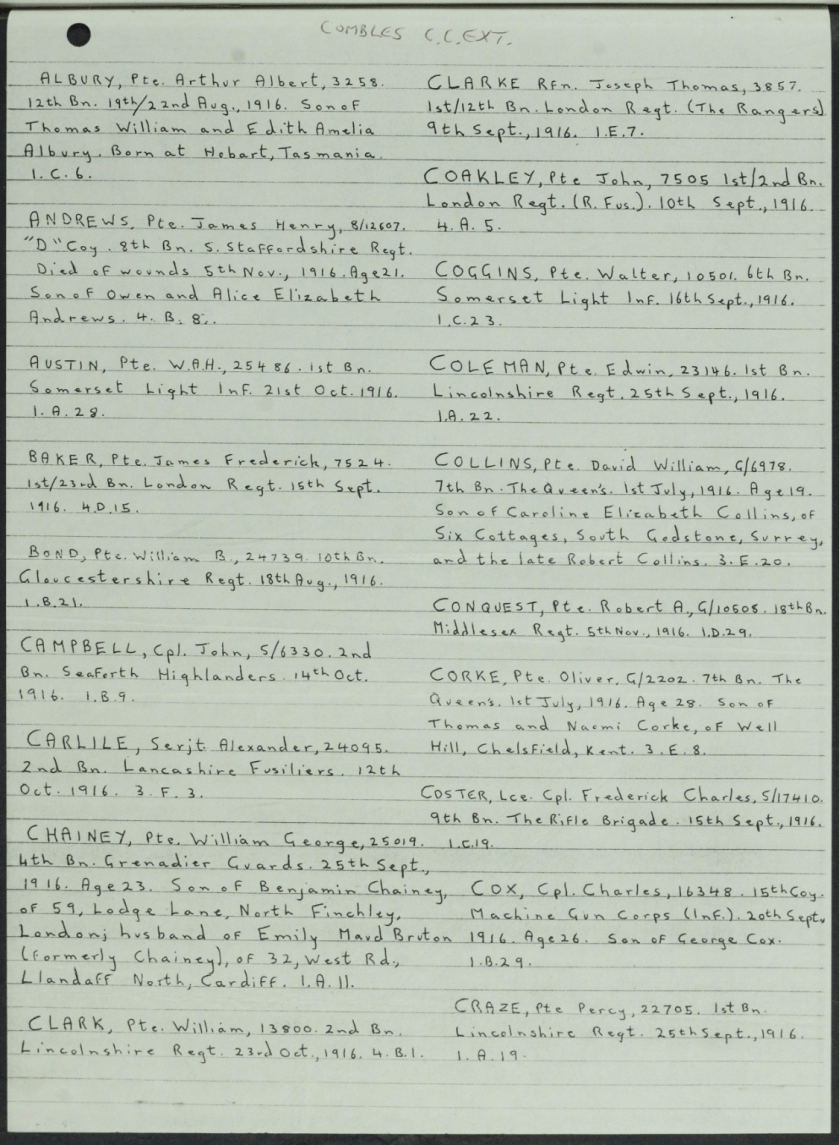 COMBLES C.C.EXT.
ALBURY, Pte. Arthur Albert, 3258.
12th Bn. 19th/22nd Aug., 1916. Son of
Thomas William and Edith Amelia
Albury. Born at Hobart, Tasmania.
1. C. 6.
ANDREWS, Pte. James Henry, 8/12607.
"D" Coy. 8th Bn. S. Staffordshire Regt.
Died of wounds 5th Nov., 1916. Age 21.
Son of Owen and Alice Elizabeth
Andrews. 4. B. 8.
AUSTIN, Pte. W.A.H., 25486. 1st Bn.
Somerset Light Inf. 21st Oct. 1916.
1. A. 28.
BAKER, Pte. James Frederick, 7524.
1st/23rd Bn. London Regt. 15th Sept.
1916. 4.D.15.
BOND, Pte. William B., 24739. 10th Bn.
Gloucestershire Regt. 18th Aug., 1916.
1.B.21.
CAMPBELL, Cpl. John, S/6330. 2nd
Bn. Seaforth Highlanders. 14th Oct.
1916. 1.B.9.
CARLILE, Serjt. Alexander, 24095.
2nd Bn. Lancashire Fusiliers. 12th
Oct. 1916. 3. F. 3.
CHAINEY, Pte. William George, 25019.
4th Bn. Grenadier Guards. 25th Sept.,
1916. Age 23. Son of Benjamin Chainey,
of 59, Lodge Lane, North Finchley,
London; husband of Emily Maud Bruton
(formerly Chainey), of 32, West Rd.,
Llandaff North, Cardiff. 1. A. 11.
CLARK, Pte. William, 13800. 2nd Bn.
Lincolnshire Regt. 23rd Oct., 1916. 4. B. 1.
CLARKE Rfn. Joseph Thomas, 3857.
1st/12th Bn. London Regt. (The Rangers)
9th Sept., 1916. 1.E.7.
COAKLEY, Pte John, 7505 1st/2nd Bn.
London Regt. (R. Fus.). 10th Sept., 1916.
4. A. 5.
COGGINS, Pte. Walter, 10501. 6th Bn.
Somerset Light Inf. 16th Sept., 1916.
1.C.23.
COLEMAN, Pte. Edwin, 23146. 1st Bn.
Lincolnshire Regt. 25th Sept., 1916.
1.A.22.
COLLINS, Pte. David William, G/6978.
7th Bn. The Queen's. 1st July, 1916. Age 19.
Son of Caroline Elizabeth Collins, of
Six Cottages, South Godstone, Surrey,
and the late Robert Collins. 3. E. 20.
CONQUEST, Pte. Robert A., G/10505. 18th Bn.
Middlesex Regt. 5th Nov., 1916. 1.D.29.
CORKE, Pte. Oliver, G/2202. 7th Bn. The
Queen's. 1st July, 1916. Age 28. Son of
Thomas and Naomi Corke, of Well
Hill, Chelsfield, Kent. 3. E. 8.
COSTER, Lce. Cpl. Frederick Charles, S/17410.
9th Bn. The Rifle Brigade. 15th Sept., 1916.
1.C.19.
COX, Cpl. Charles, 16348. 15th Coy.
Machine Gun Corps (Inf.). 20th Sept.
1916. Age 26. Son of George Cox.
1.B.29.
CRAZE, Pte Percy, 22705. 1st Bn.
Lincolnshire Regt. 25th Sept., 1916.
1. A. 19.